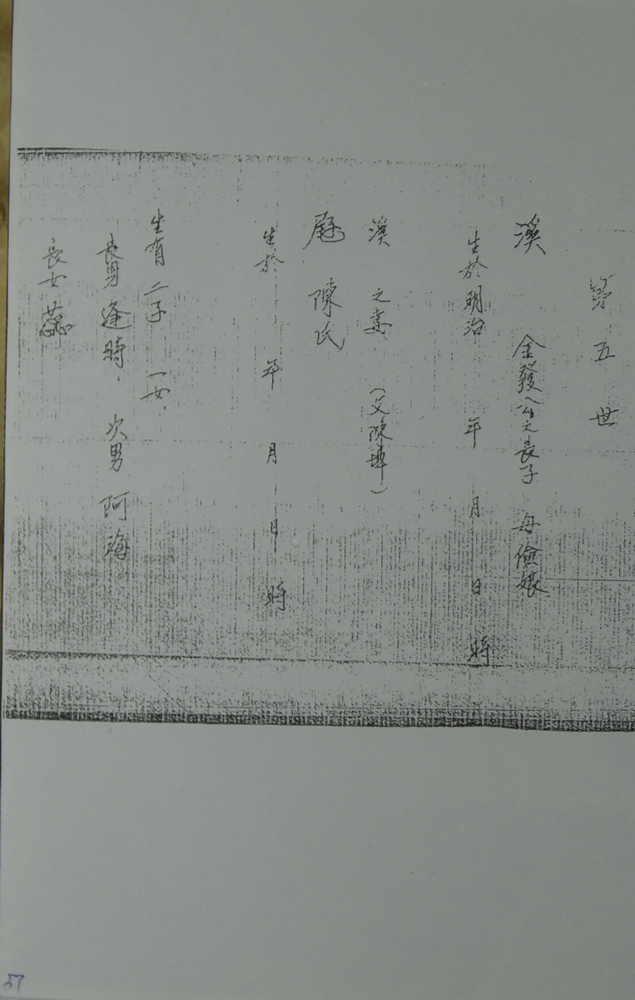 第五世
溪 金發公之長子 母儉娘
生於明治 年 月 日 時
溪之妻 (父陳) 
尾 陳氏
生於 年 月 日 時
生有二子 一女.
長男 逢時. 次男 阿海
長女 蕊
57